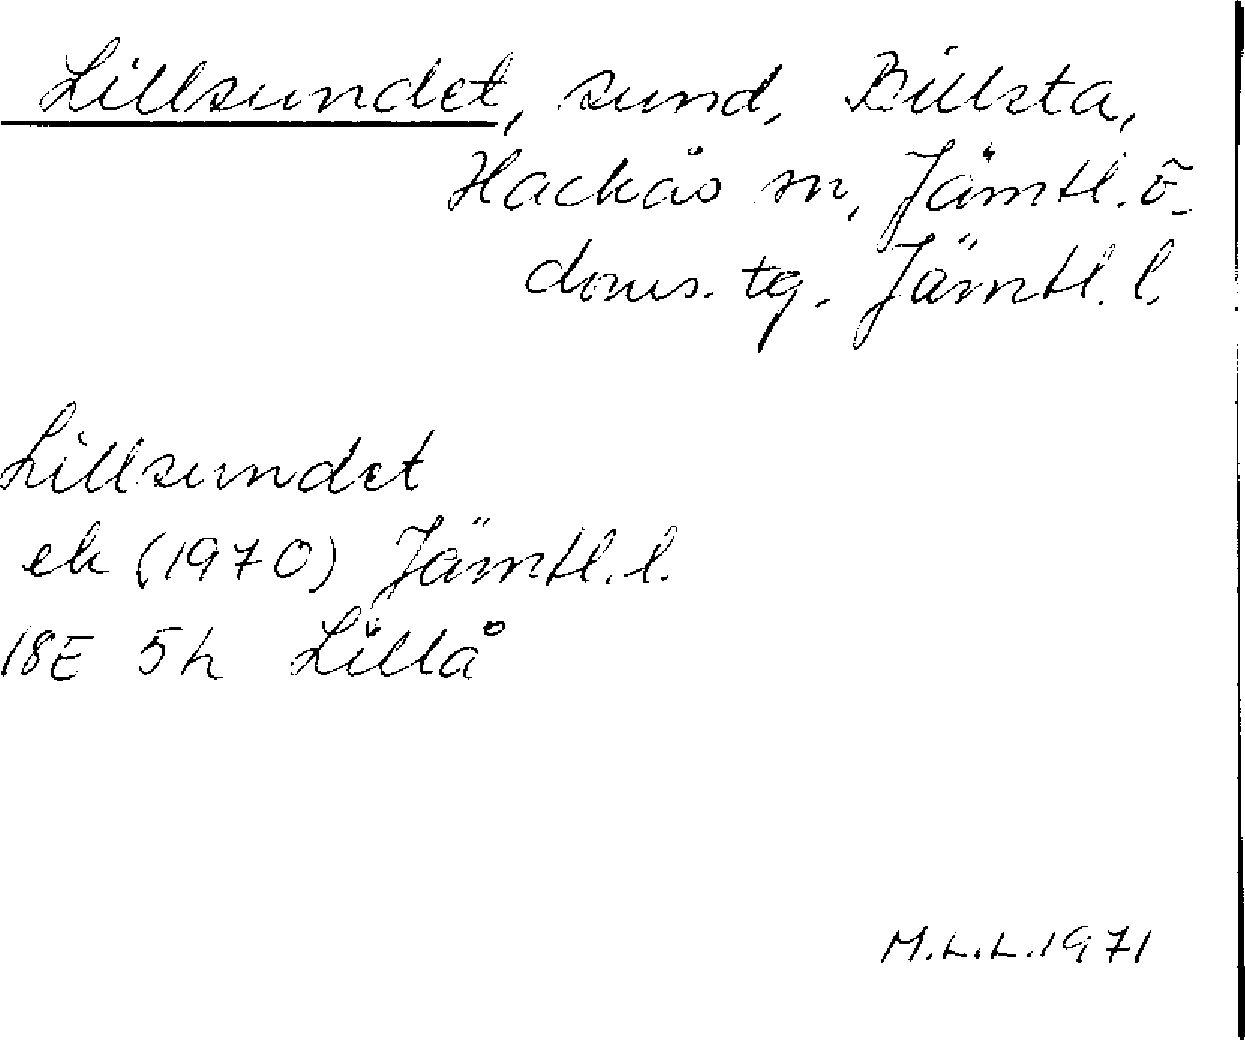 Lillsundet, sund, Billsta,
Hackås sn, Jämtl. ö.
doms. tg. Jämtl. l.
Lillsundet
ek (1970) Jämtl. l.
18E 5h Lillå
M.L.L. 1971